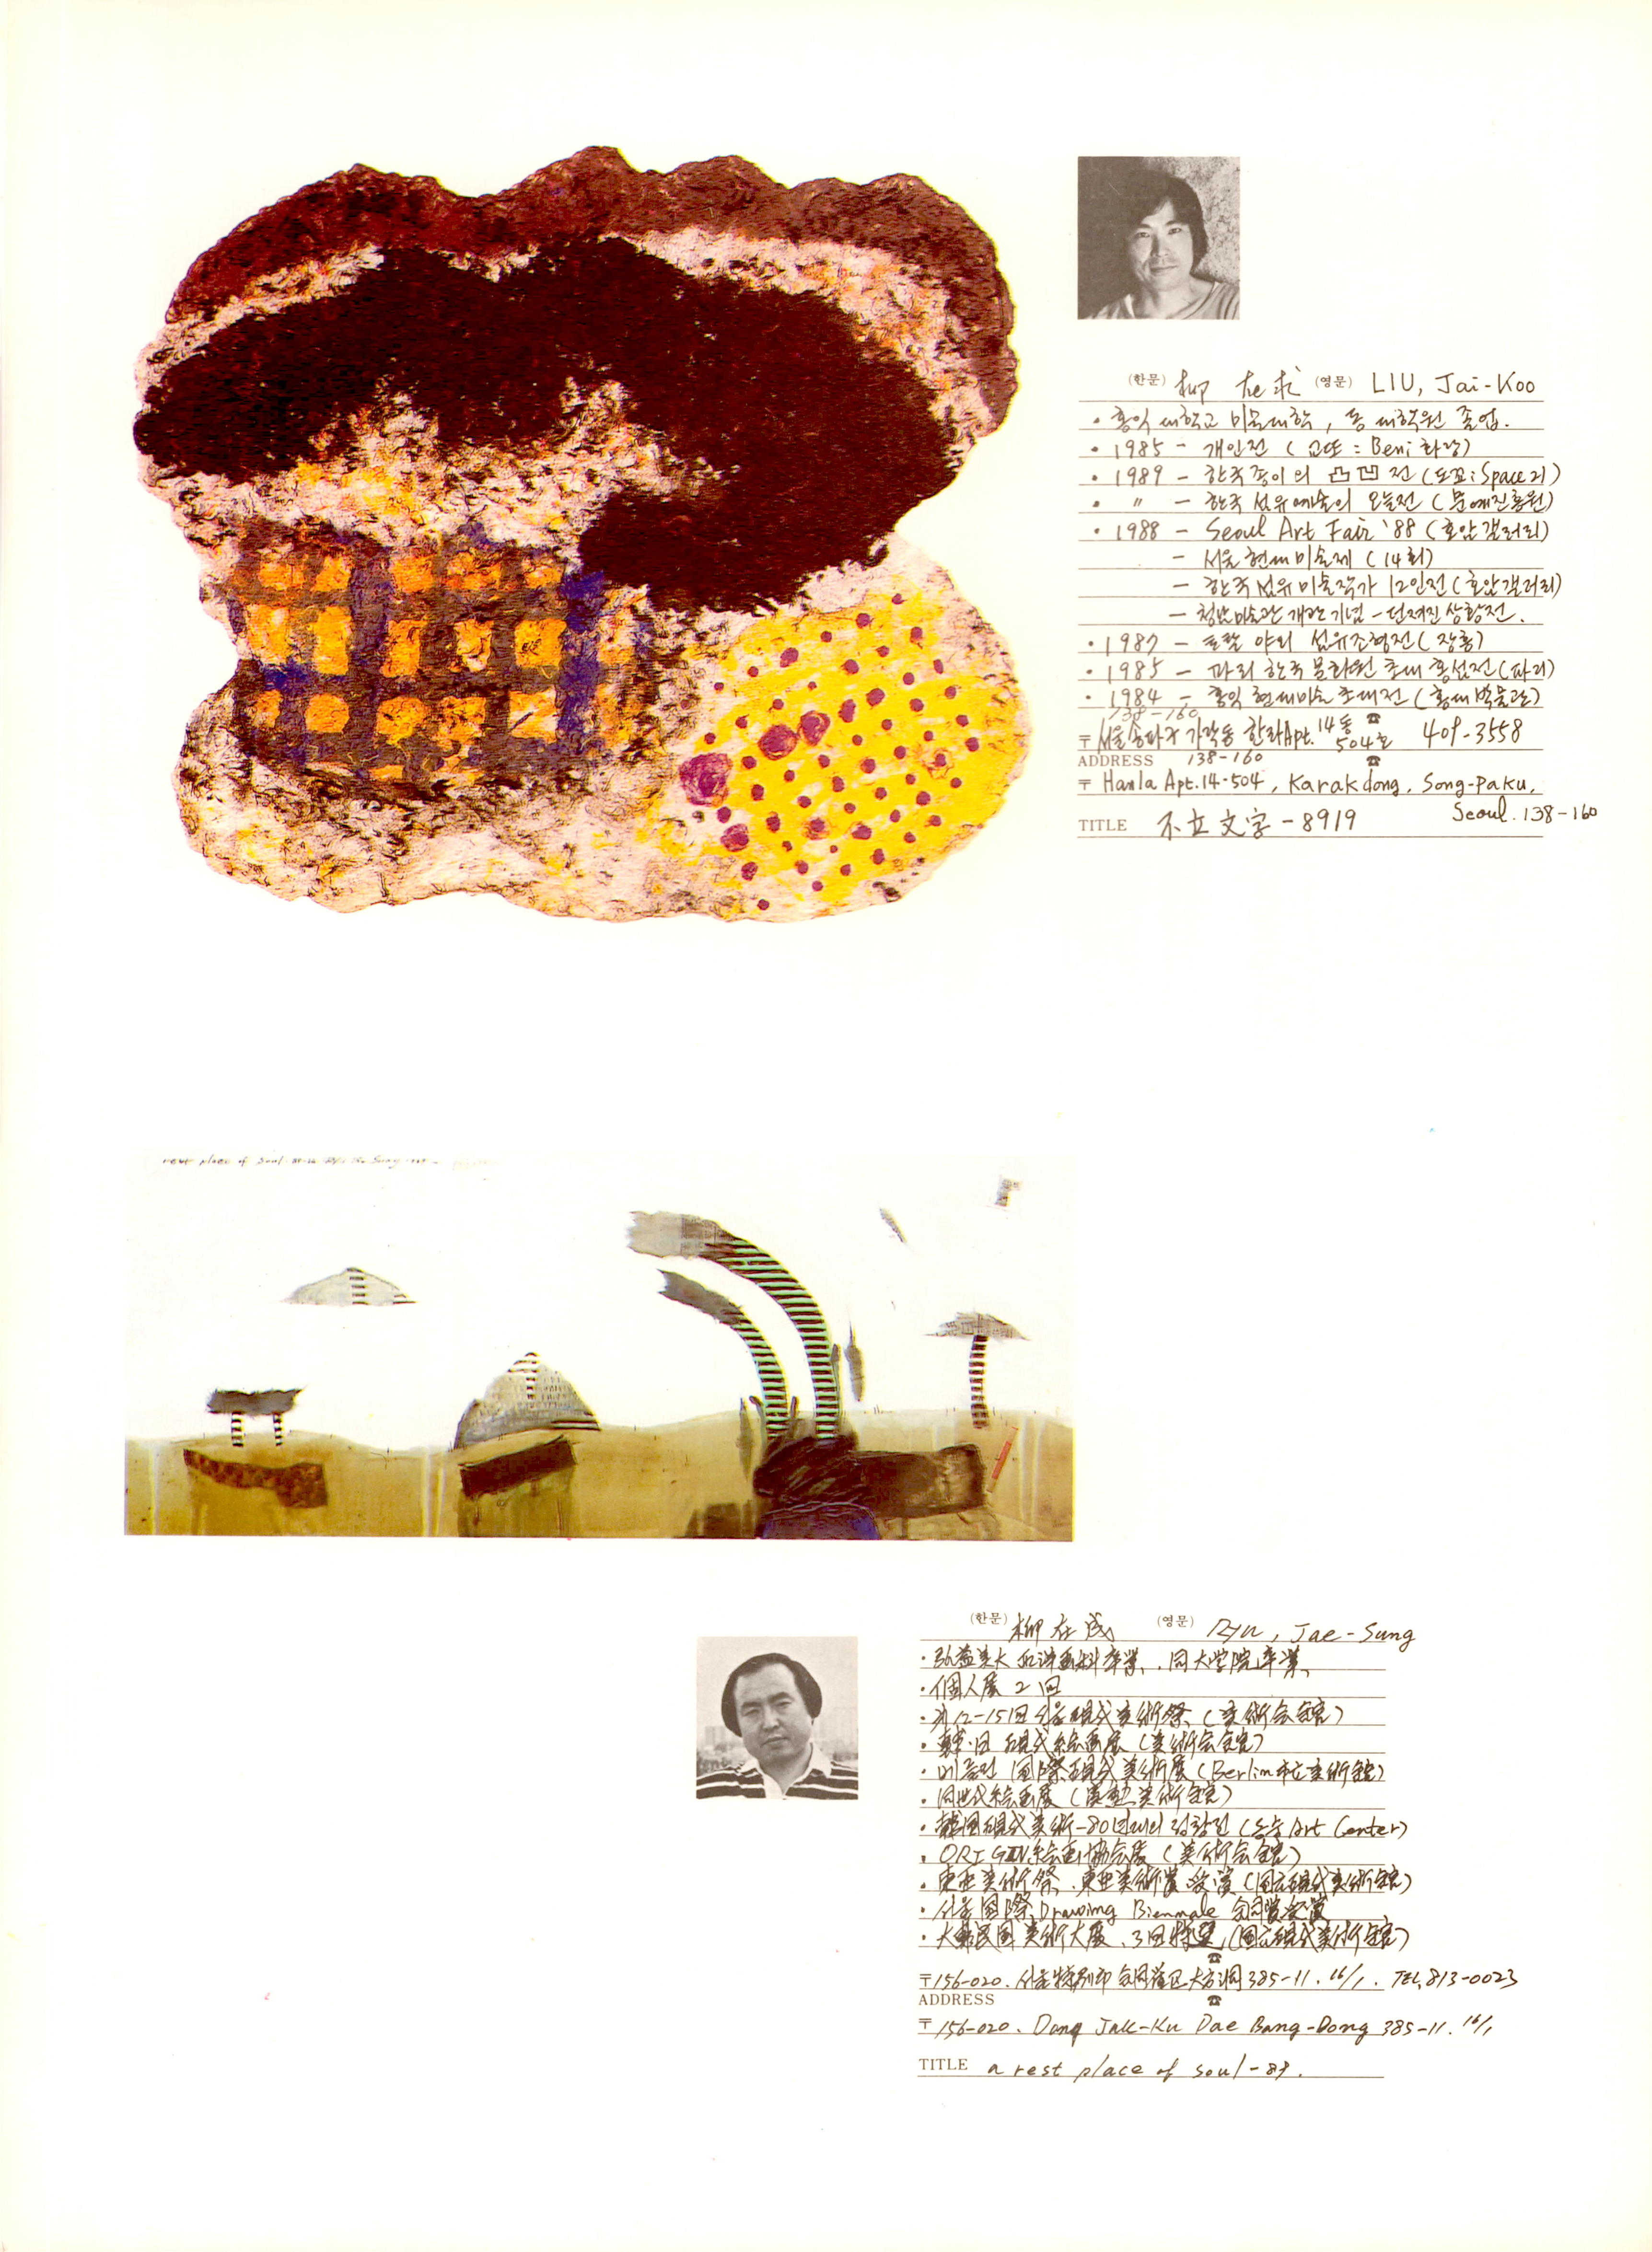 (한문) 柳 在 求 (영문) LIU, Jai-Koo
· 홍익대학교 미술대학, 동 대학원 졸업.
· 1985 - 개인전 (교또 : Beni 화랑)
· 1989 - 한국종이의 凸凹 전 (도꾜 : Space 21)
· 〃 - 한국 섬유예술의 오늘전 (문예진흥원)
· 1988 - Seoul Art Fair '88 (호암갤러리)
- 서울 현대미술제 (14회)
- 한국섬유미술작가 12인전 (호암갤러리)
- 청남미술관 개관기념 - 던져진 상황전.
· 1987 - 토탈 야외 섬유조형전 (장흥)
· 1985 - 파리 한국문화원 초대 홍섬전 (파리)
· 1984 - 홍익 현대미술 초대전 (홍대 박물관)
138-160
〒 서울 송파구 가락동 한라Apt. 14동 504호 ☎ 409-3558
ADDRESS 138-160 ☎
〒 Hanla Apt. 14-504, Karakdong, Song-paku,
Seoul. 138-160
TITLE 不立文字 - 8919
place of Soul
(한문) 柳在成 (영문) Ryu, Jae-Sung
· 弘益美大 西洋画科 卒業, 同大学院 卒業,
· 個人展 2回
· 第12-15回 서울現代美術祭, (美術会館)
· 韓·日 現代絵画展 (美術会館)
· 国際現代美術展 (Berlin市立美術館)
· 絵画展 (美術館)
· 韓国現代美術-80년대의 정황전 (동숭 Art Center)
· ORIGIN絵画協会展 (美術会館)
· 東亜美術祭, 東亜美術賞 受賞 (国立現代美術館)
· 서울国際 Drawing Biennale 受賞
· 大韓民国 美術大展, 3回 特選, (国立現代美術館)
☎
〒156-020. 서울特別市 銅雀区 大方洞 385-11. 16/1. TEL, 813-0023
ADDRESS ☎
〒156-020. Dong Jak-Ku Dae Bang-Dong 385-11. 16/1
TITLE a rest place of soul - 89.